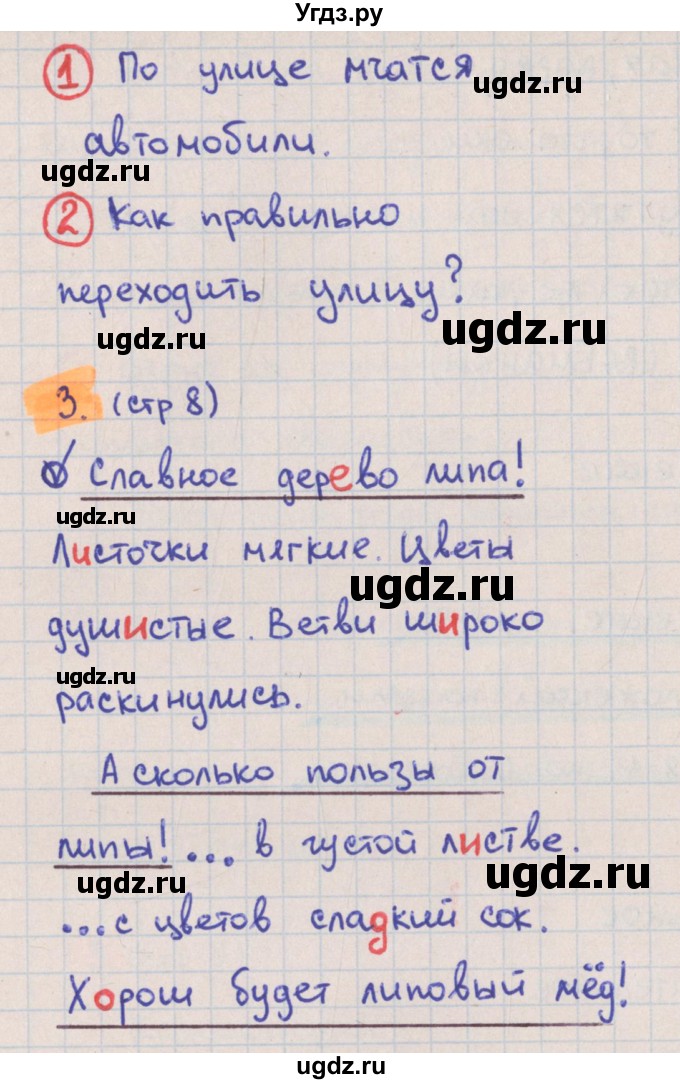 Угдз.ру
1 По улице мчатся
ugdz.ru
автомобили.
ugdz.ru
2 Как правильно
переходить улицу?
ugdz.ru
ugdz.ru
3. (стр 8)
Славное дерево липа!
ugdz.ru
Листочки мягкие. Цветы
ugdz.ru
душистые. Ветви широко
ugdz.ru
раскинулись.
А сколько пользы от
липы! ... в густой листве.
ugdz.ru
ugdz.ru
... с цветов сладкий сок.
Хорош будет липовый мёд!
ugdz.ru